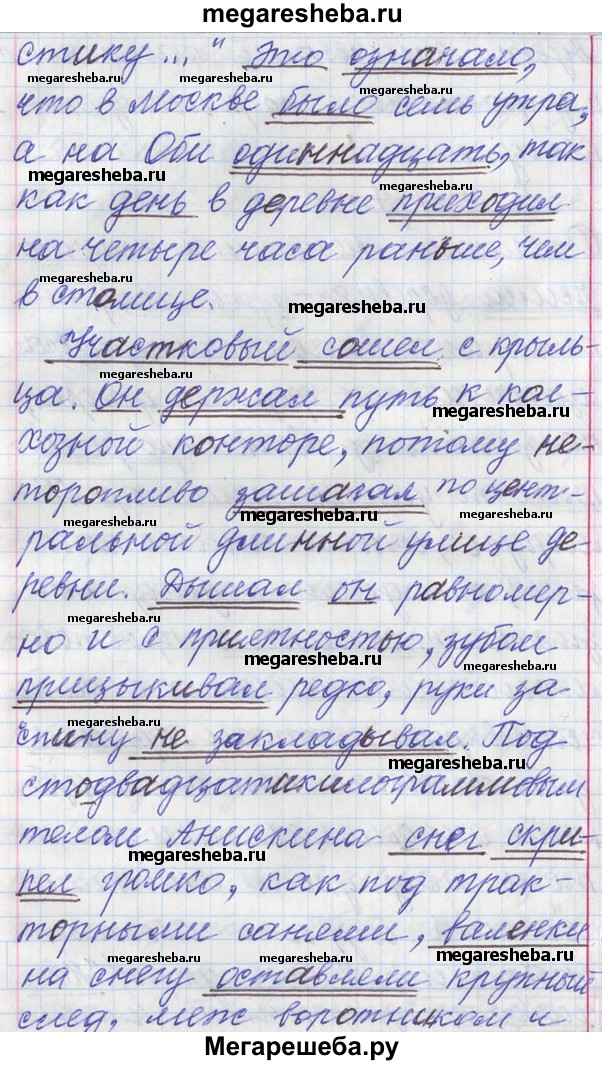 megaresheba.ru
стику..." Это означало,
megaresheba.ru megaresheba.ru
что в Москве было семь утра,
megaresheba.ru
а на Оби одиннадцать, так
megaresheba.ru megaresheba.ru
как день в деревне приходил
на четыре часа раньше, чем
megaresheba.ru
в столице.
megaresheba.ru
Участковый сошел с крыль-
megaresheba.ru
ца. Он держал путь к кол-
megaresheba.ru
хозной конторе, потому не-
торопливо зашагал по цент-
megaresheba.ru megaresheba.ru megaresheba.ru
ральной длинной улице де-
ревни. Дышал он равномер-
megaresheba.ru
но и с приятностью, зубом
megaresheba.ru
прицыкивал редко, руки за
megaresheba.ru
спину не закладывал. Под
megaresheba.ru
стодвадцатикилограммовым
телом Анискина снег скри-
megaresheba.ru
пел громко, как под трак-
торными санями, валенки
megaresheba.ru
на снегу оставляли крупный
след, меж воротником и
Мегарешеба.ру